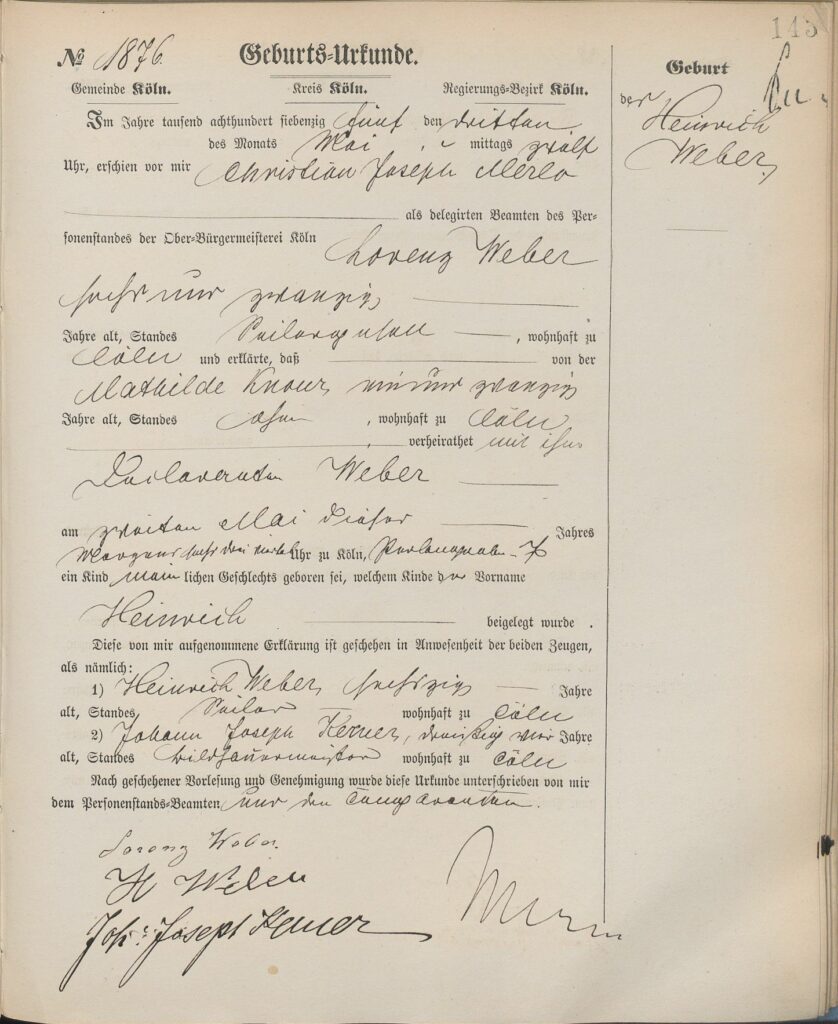 143
№ 1876.
Geburts-Urkunde.
Gemeinde Köln. Kreis Köln. Regierungs-Bezirk Köln.
Geburt
der
Heinrich
Weber
Im Jahre tausend achthundert siebenzig fünf den dritten
des Monats Mai mittags zwölf
Uhr, erschien vor mir Christian Joseph Merlo
als delegirten Beamten des Per-
sonenstandes der Ober-Bürgermeisterei Köln Lorenz Weber
sechs und zwanzig
Jahre alt, Standes , wohnhaft zu
Cöln und erklärte, daß von der
Mathilde Knour, ein und zwanzig
Jahre alt, Standes ohne , wohnhaft zu Cöln
, verheirathet mit ihm
Declaranten Weber
am zweiten Mai dieses Jahres
Morgens sechs drei viertel Uhr zu Köln, Perlengraben 7
ein Kind männlichen Geschlechts geboren sei, welchem Kinde der Vorname
Heinrich beigelegt wurde .
Diese von mir aufgenommene Erklärung ist geschehen in Anwesenheit der beiden Zeugen,
als nämlich:
1) Heinrich Weber, sechszig Jahre
alt, Standes Seiler wohnhaft zu Cöln
2) Johann Joseph Kerner, dreißig vier Jahre
alt, Standes Bildhauermeister wohnhaft zu Cöln
Nach geschehener Vorlesung und Genehmigung wurde diese Urkunde unterschrieben von mir
dem Personenstands-Beamten und den Comparenten.
Lorenz Weber.
H Weber
Joh: Joseph Kerner